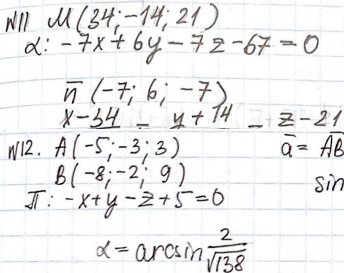 N11 M(34;-14;21)
α: -7x+6y-7z-67=0
n̄ (-7; 6; -7)
x-34 = y+14 = z-21
N12. A(-5;-3;3) ā = AB
B(-8;-2; 9) sin
П: -x+y-z+5=0
α=arcsin 2/√138